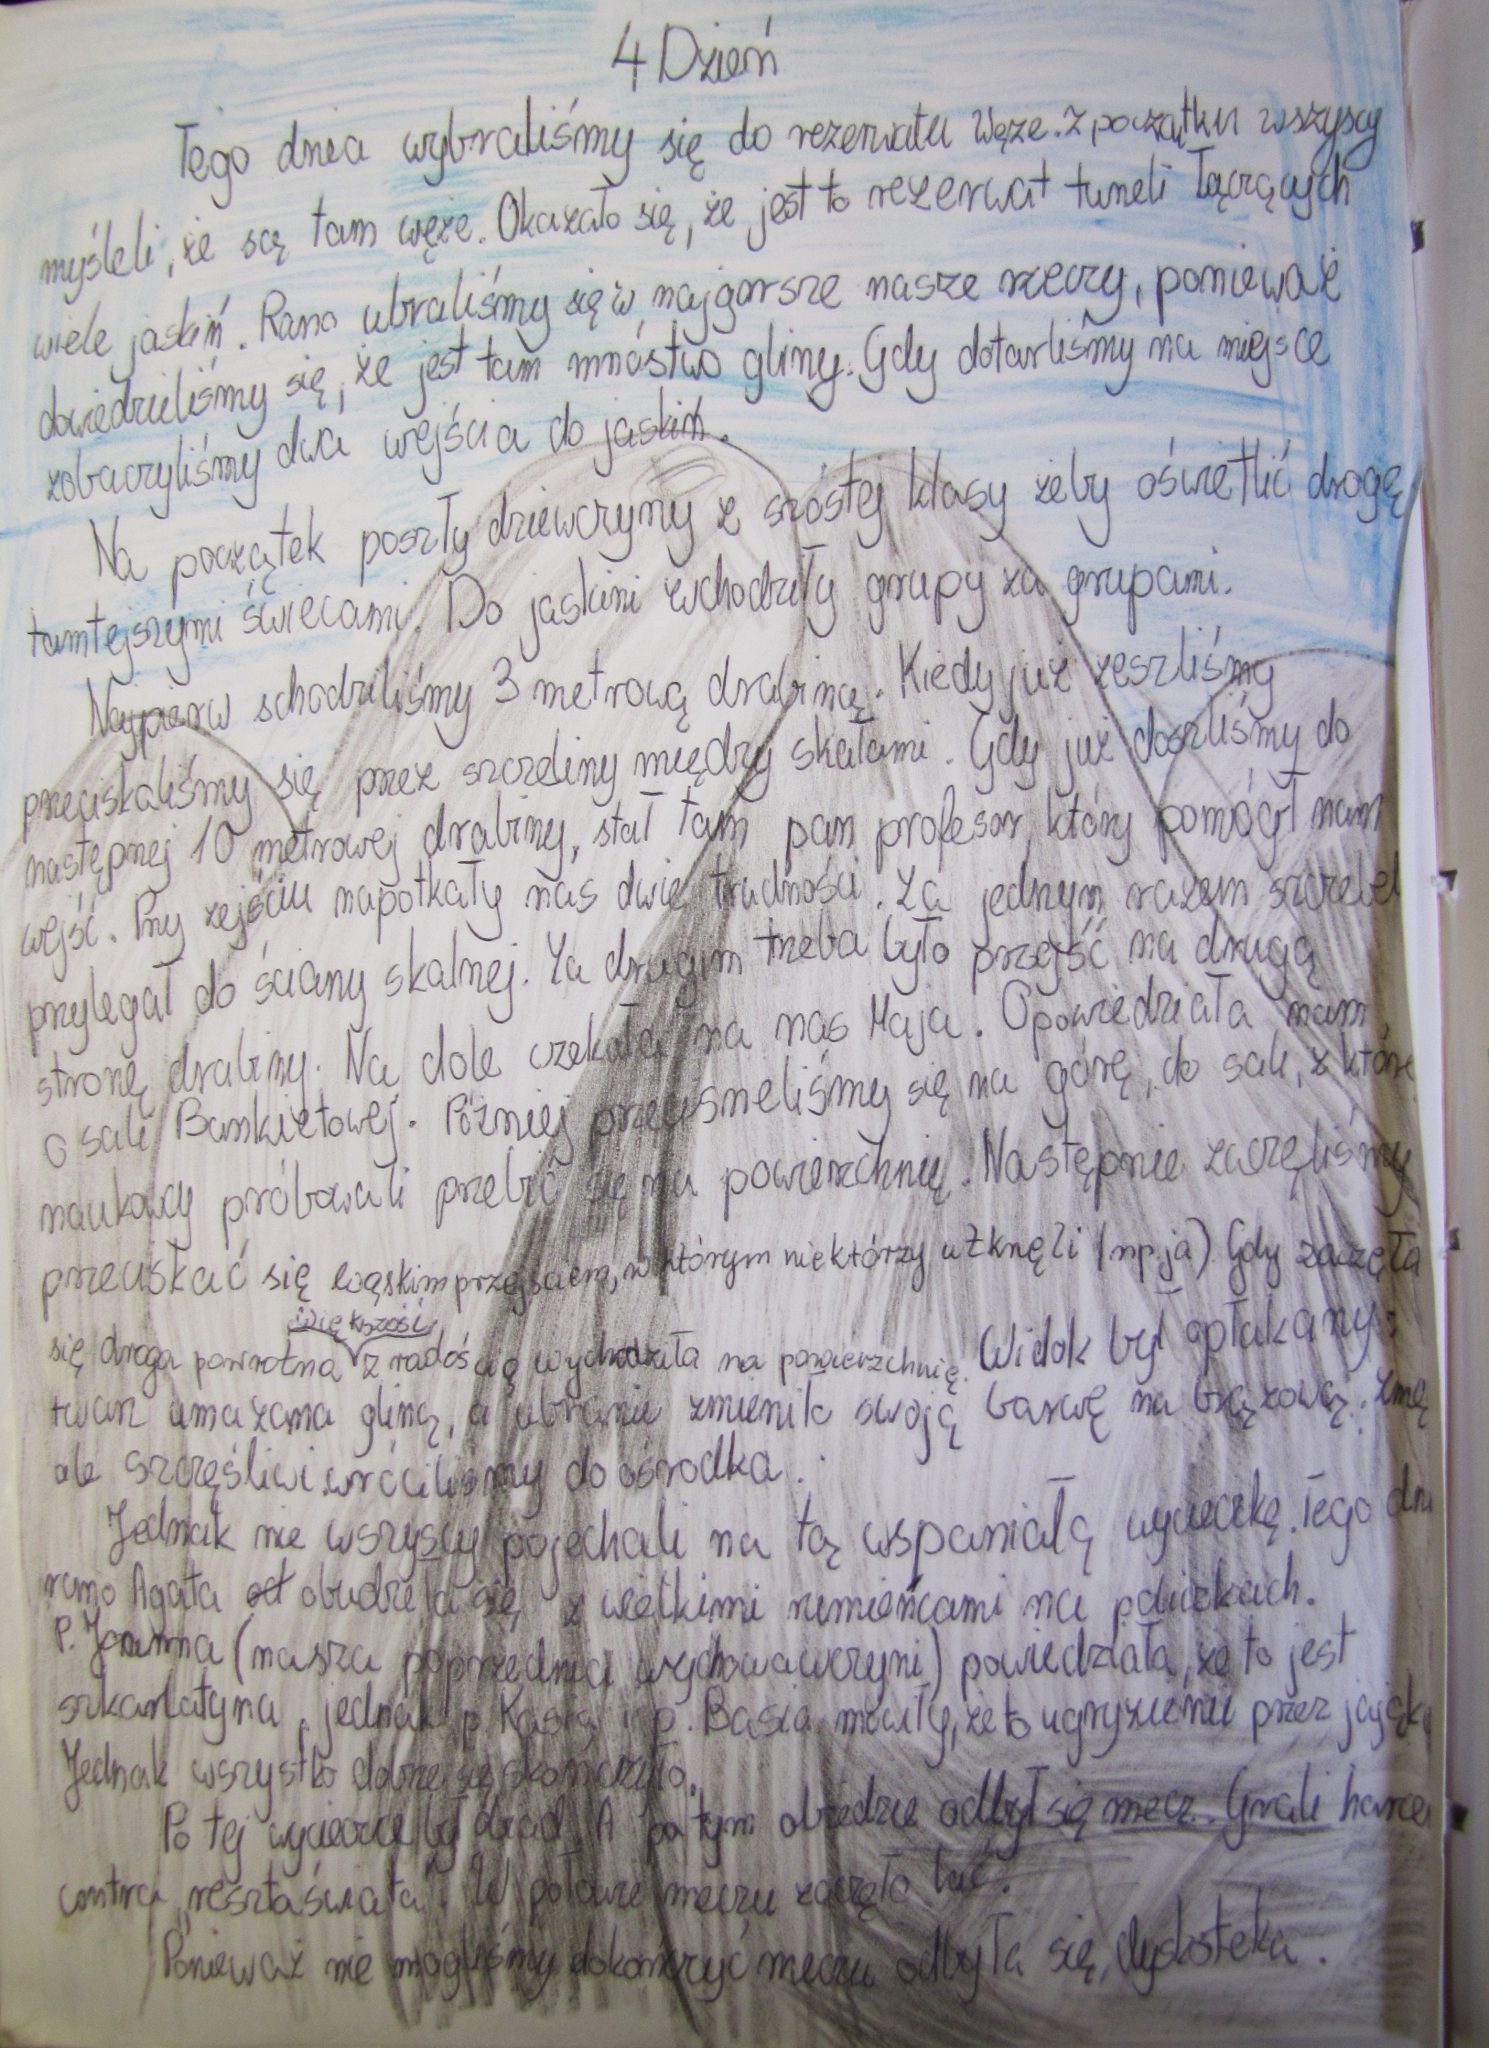 4 Dzień
Tego dnia wybraliśmy się do rezerwatu Węże. Z początku wszyscy
myśleli, że są tam węże. Okazało się, że jest to rezerwat tuneli łączących
wiele jaskiń. Rano ubraliśmy się w najgorsze nasze rzeczy, ponieważ
dowiedzieliśmy się, że jest tam mnóstwo gliny. Gdy dotarliśmy na miejsce
zobaczyliśmy dwa wejścia do jaskiń.
Na początek poszły dziewczyny z szóstej klasy żeby oświetlić drogę
tamtejszymi świecami. Do jaskini wchodziły grupy za grupami.
Najpierw schodziliśmy 3 metrową drabiną. Kiedy już zeszliśmy
przeciskaliśmy się przez szczeliny między skałami. Gdy już doszliśmy do
następnej 10 metrowej drabiny, stał tam pan profesor, który pomógł nam
wejść. Przy zejściu napotkały nas dwie trudności. Za jednym razem szczebel
przylegał do ściany skalnej. Za drugim trzeba było przejść na drugą
stronę drabiny. Na dole czekała na nas Maja. Opowiedziała nam
o sali Bankietowej. Później przecisneliśmy się na górę, do sali, z któr
naukowcy próbowali przebić się na powierzchnię. Następnie zaczęliśmy
przeciskać się wąskim przejściem, w którym niektórzy utknęli (np. ja). Gdy zaczęła
się droga powrotna większość z radością wychodziła na powierzchnię. Widok był opłakany:
twarz umazana gliną, a ubranie zmieniło swoją barwę na brązową.
ale szczęśliwi wróciliśmy do ośrodka.
Jednak nie wszyscy pojechali na tą wspaniałą wycieczkę. Tego dni
rano Agata obudziła się z wielkimi rumieńcami na policzkach.
P. Joanna (nasza poprzednia wychowawczyni) powiedziała, że to jest
szkarlatyna, jednak p. Kasia i p. Basia mówiły, że to ugryzienie przez
Jednak wszystko dobrze się skończyło.
Po tej wycieczce był obiad. A po tym obiedzie odbył się mecz. Grali harce
contra „reszta świata". W połowie meczu zaczęło lać.
Ponieważ nie mogliśmy dokończyć meczu odbyła się dyskoteka.